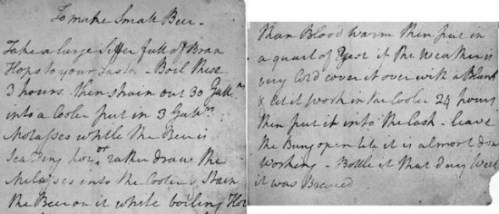 To make Small Beer.
Take a large Siffer full of Bran
Hops to your Taste. - Boil these
3 hours. then strain out 30 Gallns
into a Cooler put in 3 Gallns
Molasses while the Beer is
Scalding hot or rather draw the
Melasses into the Cooler & Strain
the Beer on it while boiling Hot
than Blood warm then put in
a quart of Yest if the Weather is
very Cold cover it over with a Blank
& let it work in the Cooler 24 hours
then put it into the Cask - leave
the Bung open till it is almost don
Working - Bottle it that day Week
it was Brewed